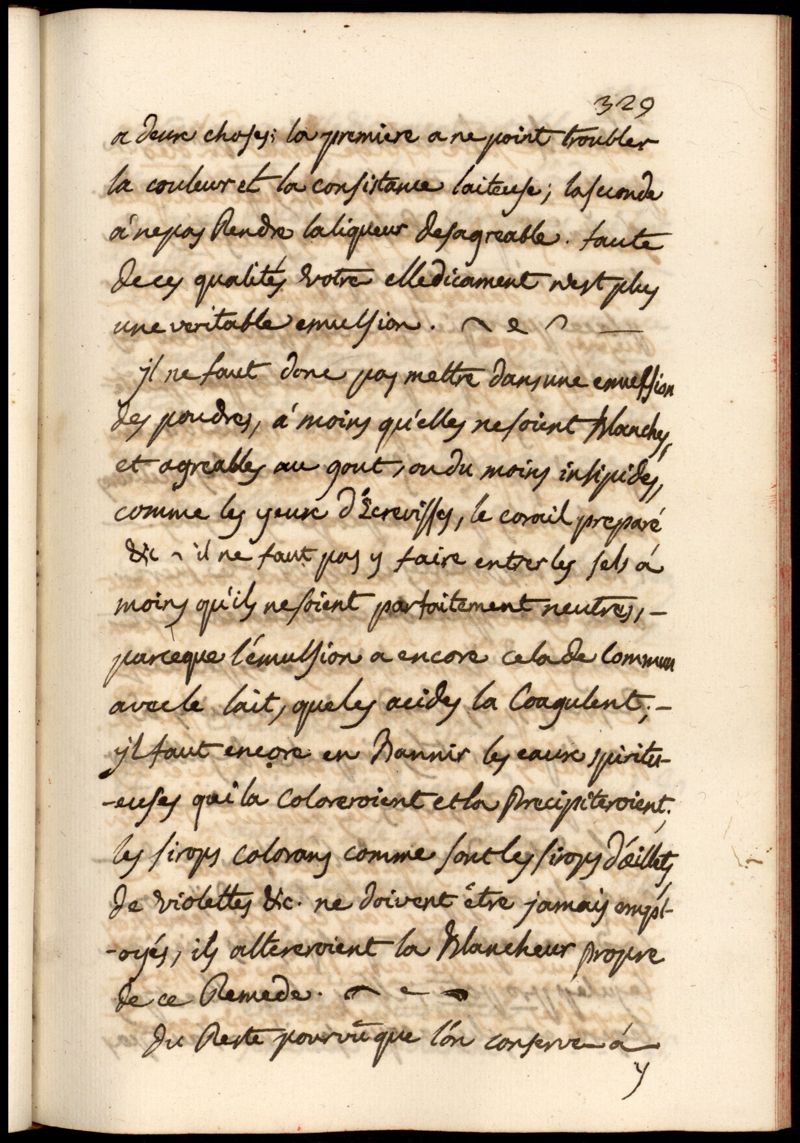 329
a deux choses; la premiere a ne point troubler
la couleur et la consistance laiteuse; la seconde
á ne pas Rendre la liqueur desagreable. faute
de ces qualités votre medicament n'est plus
une veritable emulsion.
jl ne faut donc pas mettre dans une emulsion
des poudres, á moins qu'elles ne soient Blanches,
et agreables au gout, ou du moins insipides,
comme les yeux d'Ecrevisses, le corail preparé
&c il ne faut pas y faire entrer les sels á
moins qu'ils ne soient parfaitement neutres, -
parceque l'émulsion a encore cela de Commun
avec le lait, que les acides la Coagulent; -
jl faut encore en Bannir les eaux spiritu-
-euses qui la Coloreroient et la Precipiteroient;
les sirops colorans comme sont les sirops d'œillets,
de violettes &c. ne doivent être jamais empl-
-oyés, ils altereroient la Blancheur propre
de ce Remede.
du Reste pourvû que l'on conserve á
y